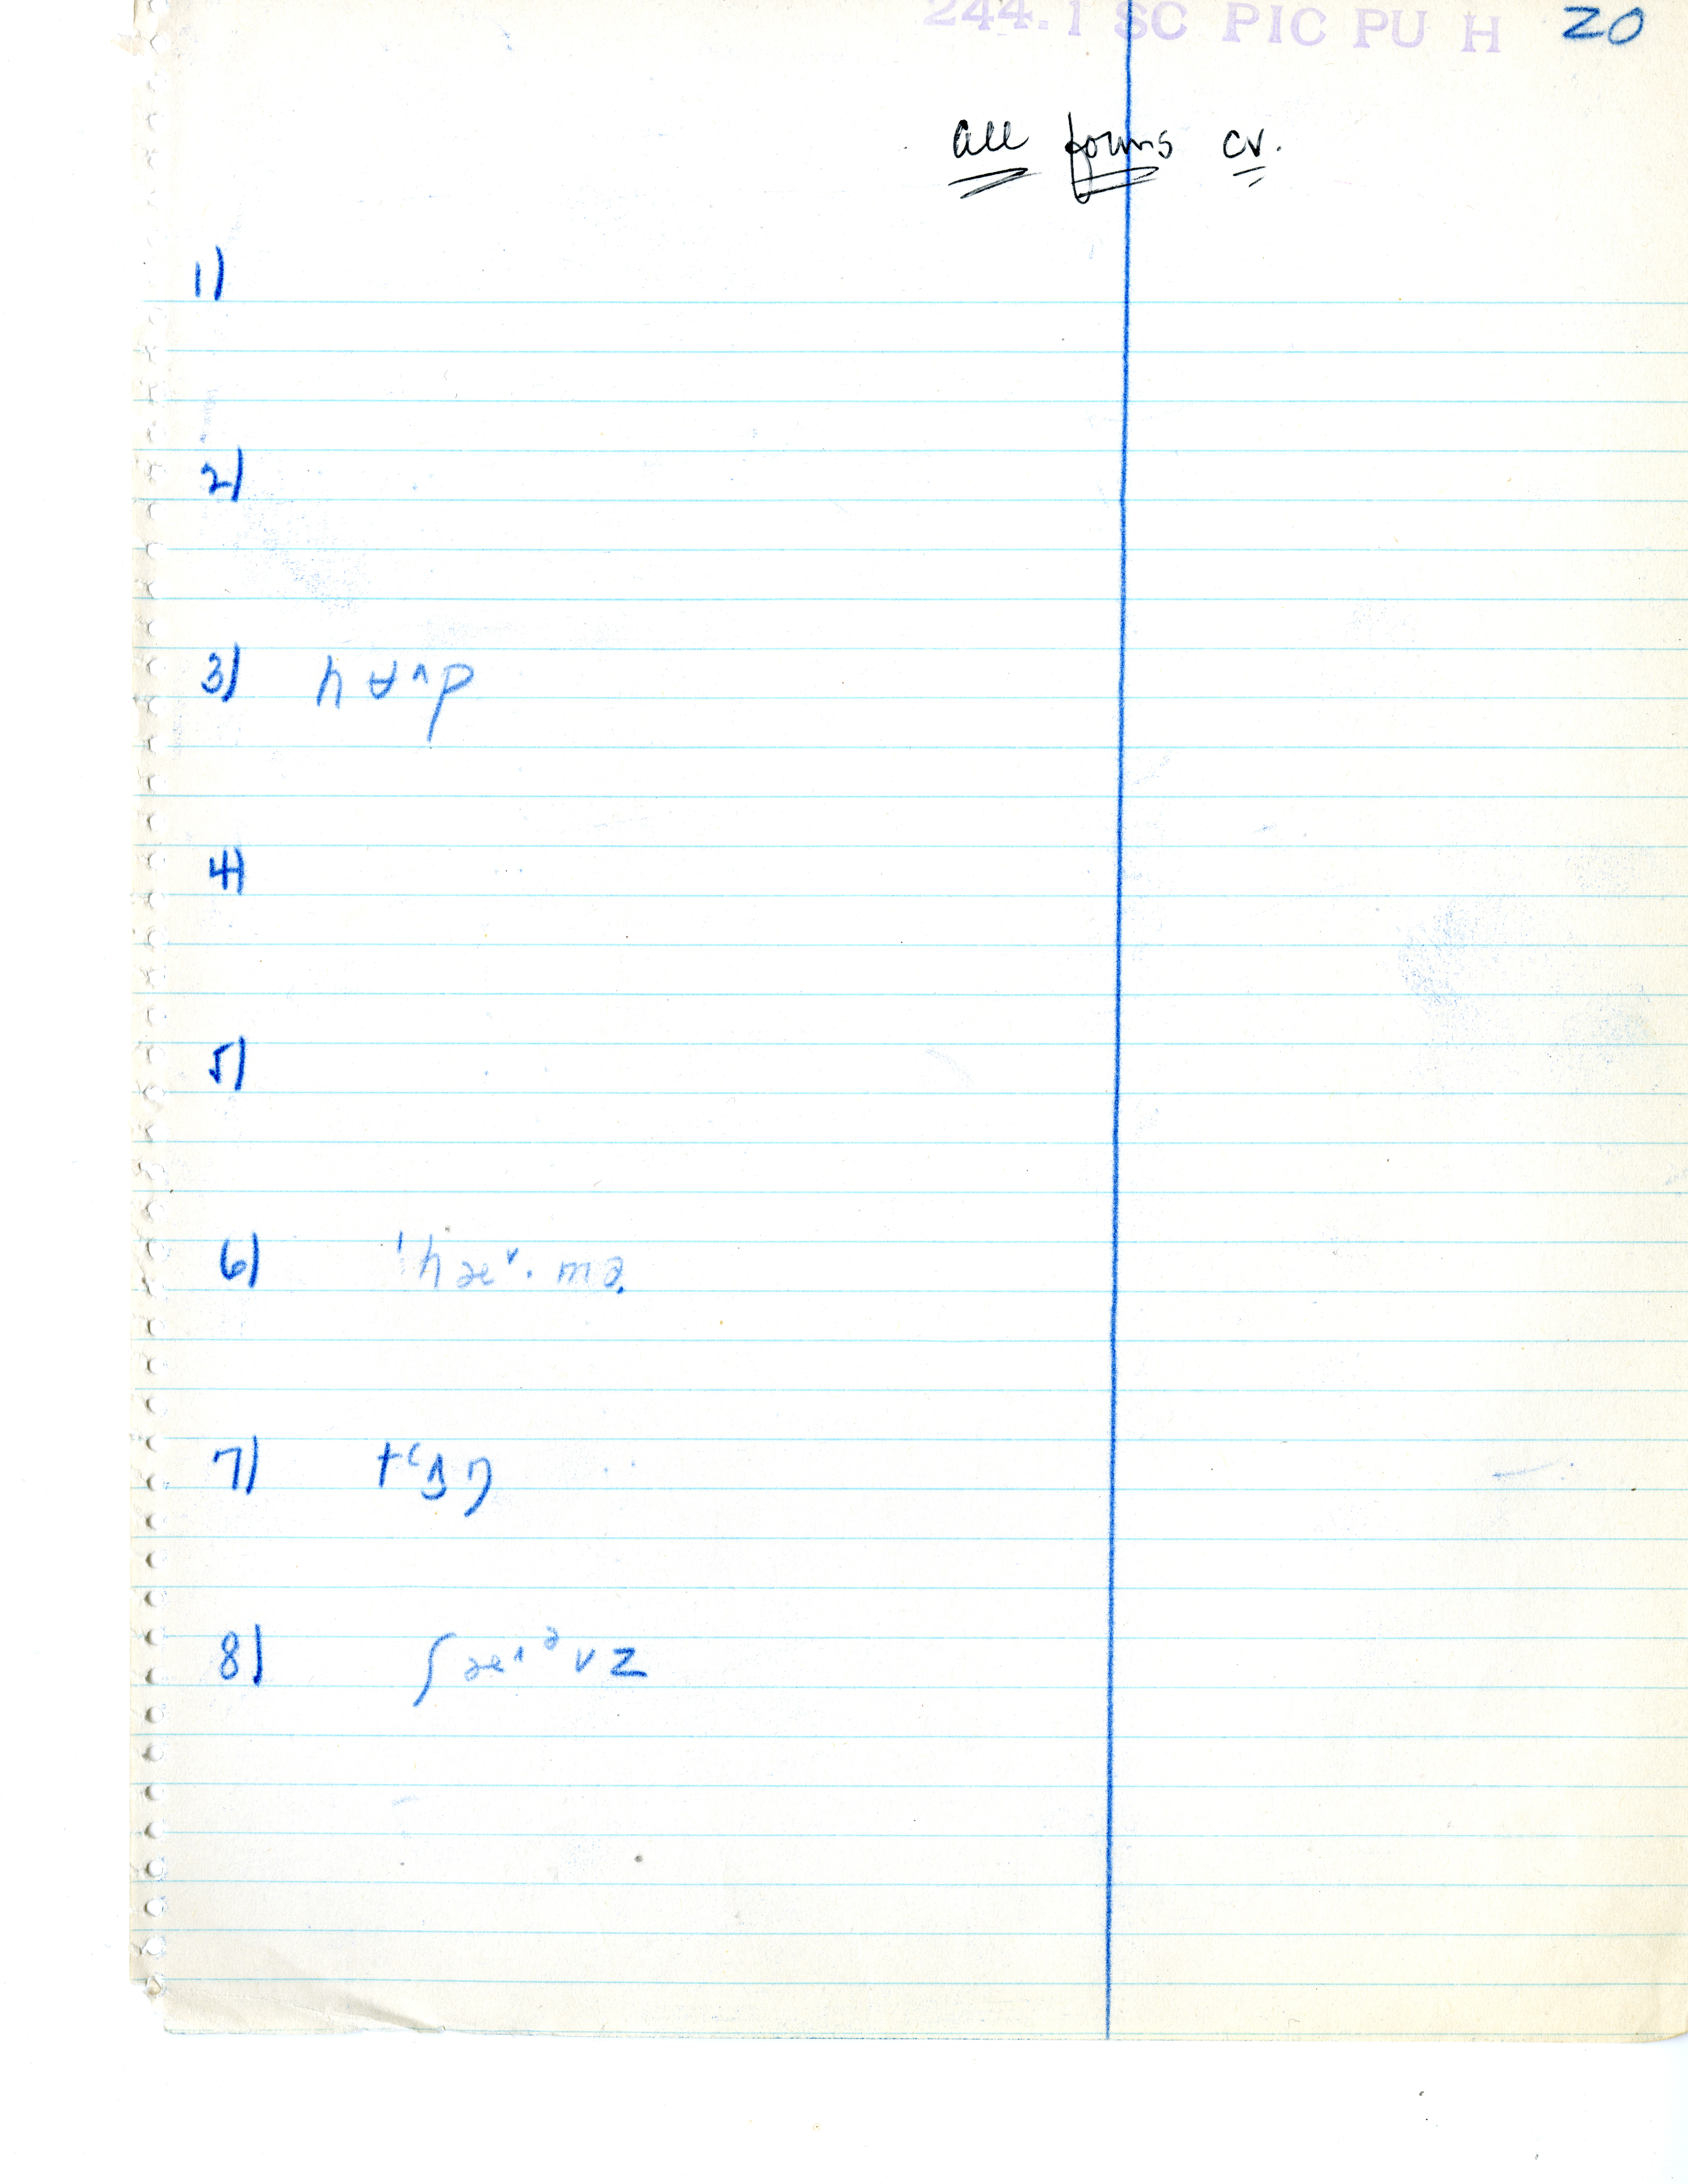 244.1 SC PIC PU H 20
all forms cv.
1)
2)
3) hɐ˄p
4)
5)
6) ˈhæ˅· mə
7)
8) ʃæ˄ᵊvz